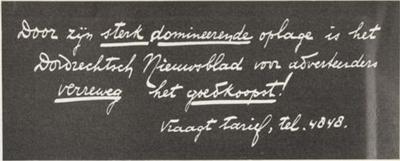 Door zijn sterk domineerende oplage is het
Dordrechtsch Nieuwsblad voor adverteerders
verreweg het goedkoopst!
Vraagt tarief, tel. 4848.